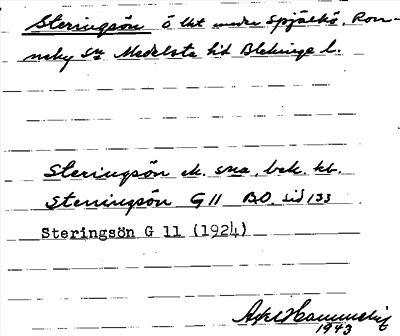 Steringsön ö lkt undre Spjälkö, Ron-
neby Sn Medelsta hd Blekinge l.
Steringsön ek. ska, bek. kb.
Sterringsön G 11 BO. sid 133
Steringsön G 11 (1924)
1943